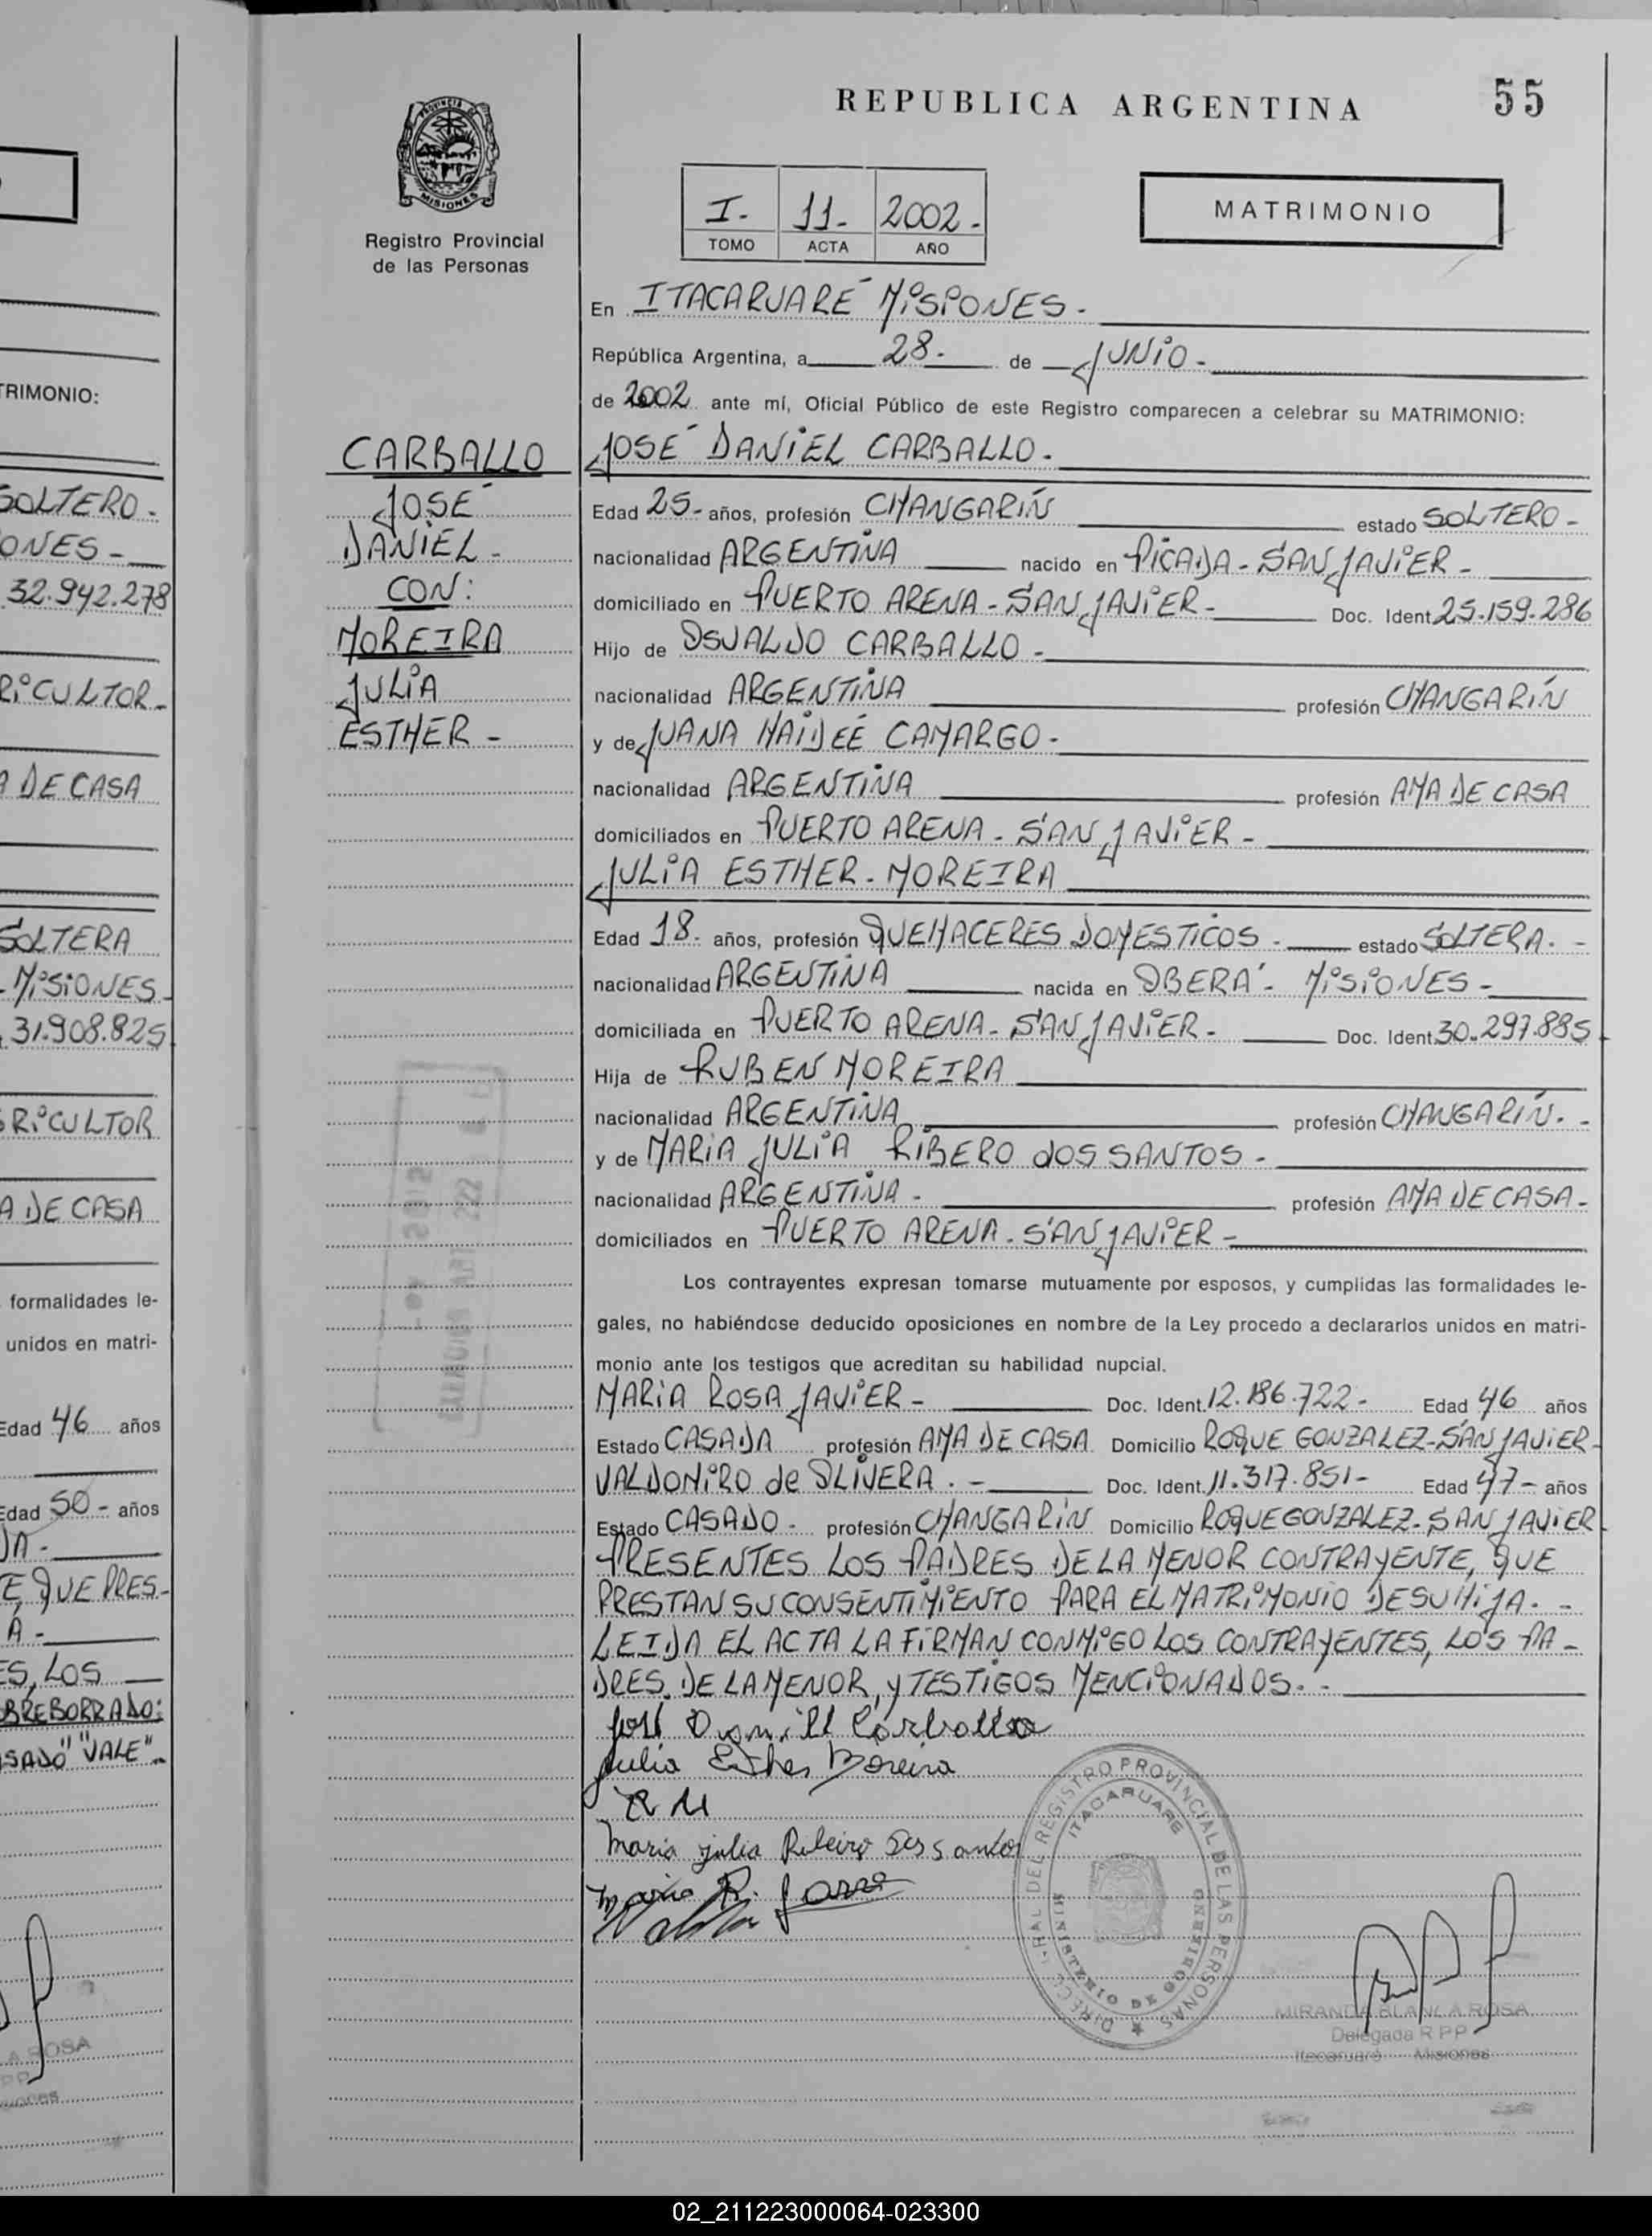 REPUBLICA ARGENTINA
55
I. 11. 2002.
TOMO ACTA AÑO
MATRIMONIO
MISIONES
Registro Provincial
de las Personas
En ITACARUARÉ MISIONES.
República Argentina, a 28. de JUNIO.
de 2002 ante mí, Oficial Público de este Registro comparecen a celebrar su MATRIMONIO:
CARBALLO
JOSÉ
DANIEL-
CON:
MOREIRA
JULIA
ESTHER-
JOSÉ DANIEL CARBALLO.
Edad 25- años, profesión CHANGARÍN estado SOLTERO-
nacionalidad ARGENTINA nacido en PICADA-SAN JAVIER-
domiciliado en PUERTO ARENA-SAN JAVIER- Doc. Ident. 25.159.286
Hijo de OSVALDO CARBALLO-
nacionalidad ARGENTINA profesión CHANGARÍN
y de JUANA HAIDEÉ CAMARGO-
nacionalidad ARGENTINA profesión AMA DE CASA
domiciliados en PUERTO ARENA-SAN JAVIER-
JULIA ESTHER-MOREIRA
Edad 18- años, profesión QUEHACERES DOMESTICOS- estado SOLTERA.-
nacionalidad ARGENTINA nacida en OBERÁ- MISIONES-
domiciliada en PUERTO ARENA-SAN JAVIER- Doc. Ident. 30.297.885
Hija de RUBEN MOREIRA
nacionalidad ARGENTINA profesión CHANGARÍN.-
y de MARIA JULIA RIBERO dOS SANTOS-
nacionalidad ARGENTINA- profesión AMA DE CASA-
domiciliados en PUERTO ARENA-SAN JAVIER-
Los contrayentes expresan tomarse mutuamente por esposos, y cumplidas las formalidades le-
gales, no habiéndose deducido oposiciones en nombre de la Ley procedo a declararlos unidos en matri-
monio ante los testigos que acreditan su habilidad nupcial.
MARIA ROSA JAVIER- Doc. Ident. 12.186.722- Edad 46 años
Estado CASADA profesión AMA DE CASA Domicilio ROQUE GONZALEZ-SAN JAVIER-
VALDOMIRO de OLIVERA.- Doc. Ident. 11.317.851- Edad 47- años
Estado CASADO- profesión CHANGARÍN Domicilio ROQUE GONZALEZ-SAN JAVIER
PRESENTES LOS PADRES DE LA MENOR CONTRAYENTE, QUE
PRESTAN SU CONSENTIMIENTO PARA EL MATRIMONIO DE SU HIJA.-
LEIDA EL ACTA LA FIRMAN CONMIGO LOS CONTRAYENTES, LOS PA-
DRES DE LA MENOR, Y TESTIGOS MENCIONADOS.-
Julia Esther Moreira
R M
Maria julia Ribeiro Dos santos
Maria R.
DIRECC. GRAL DEL REGISTRO PROVINCIAL DE LAS PERSONAS
ITACARUARE
MINISTERIO DE GOBIERNO
MIRANDA BLANCA ROSA
Delegada R P P
Itacaruaré Misiones
TRIMONIO:
SOLTERO-
ONES-
32.942.278
RICULTOR-
A DE CASA
SOLTERA
-MISIONES
31.908.825
GRICULTOR
A DE CASA
formalidades le-
unidos en matri-
Edad 46 años
Edad 50- años
DA-
TE, QUE PRES-
A-
ES, LOS
OBREBORRADO:
SADO" "VALE"-
A ROSA
02_211223000064-023300